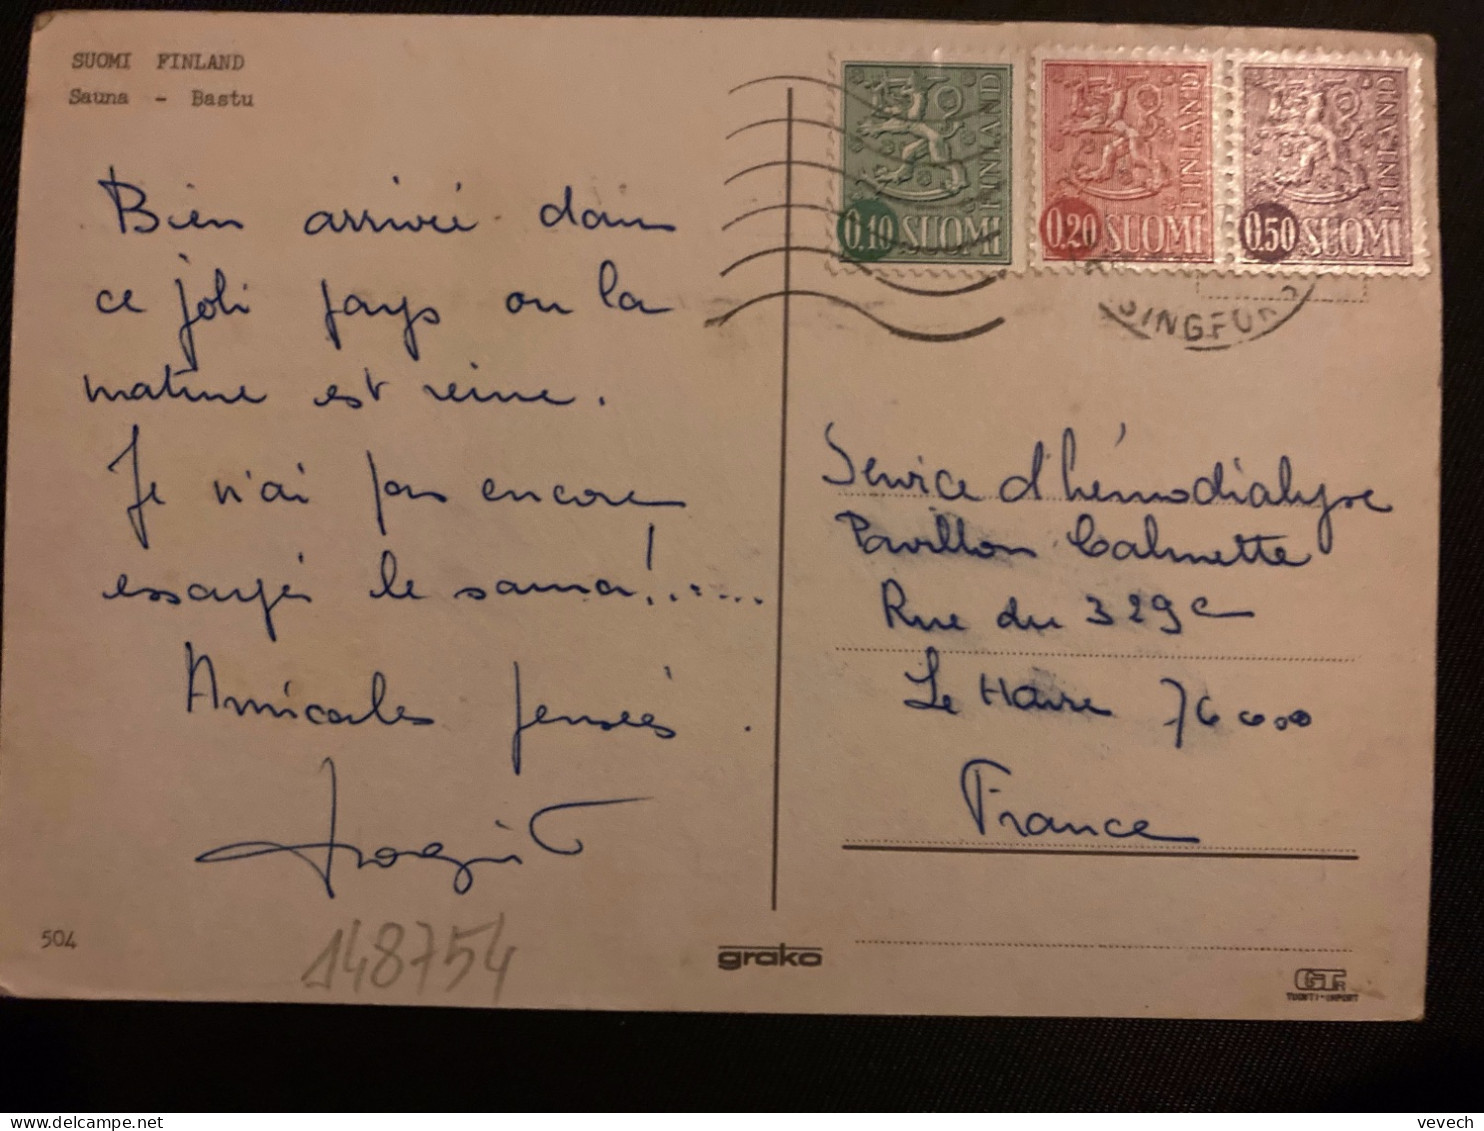 SUOMI FINLAND
Sauna - Bastu
Bien arrivée dans
ce joli pays ou la
nature est reine.
Je n'ai pas encore
essayé le sauna!.....
Amicales pensées.
148754
504
grako
0.10 SUOMI FINLAND
0.20 SUOMI FINLAND
0.50 SUOMI FINLAND
SINGFOR
Service d'hémodialyse
Pavillon Calmette
Rue du 329e
Le Havre 76600
France
GT
TUONTI-IMPORT
vevech